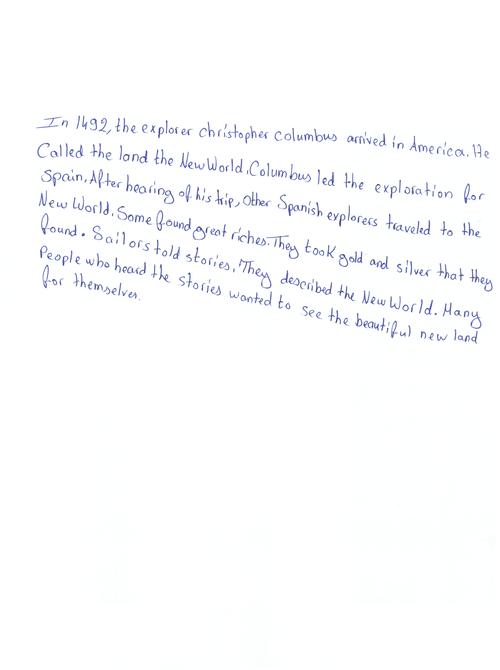 In 1492, the explorer christopher columbus arrived in America. He
Called the land the New World. Columbus led the exploration for
Spain. After hearing of his trip, Other Spanish explorers traveled to the
New World. Some found great riches. They took gold and silver that they
found. Sailors told stories. They described the New World. Many
People who heard the stories wanted to see the beautiful new land
for themselves.